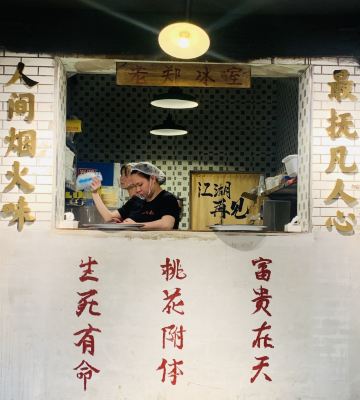 老郑冰室
人间烟火味
最抚凡人心
江湖
再见
生死有命
桃花附体
富贵在天